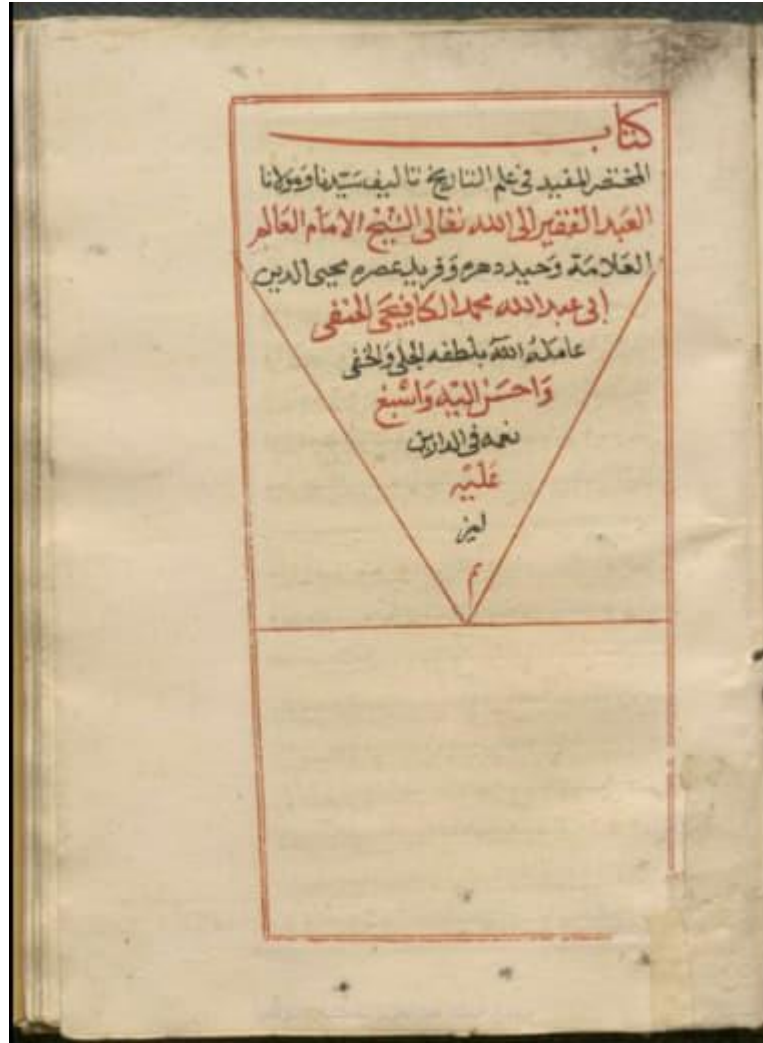 كتاب
المختصر المفيد في علم التاريخ تاليف سيدنا ومولانا
العبد الفقير الى الله تعالى الشيخ الامام العالم
العلامة وحيد دهره وفريد عصره محيي الدين
ابي عبد الله محمد الكافيجي الحنفي
عامله الله بلطفه الجلي والخفي
واحسن اليه واسبغ
نعمه في الدارين
عليه
م